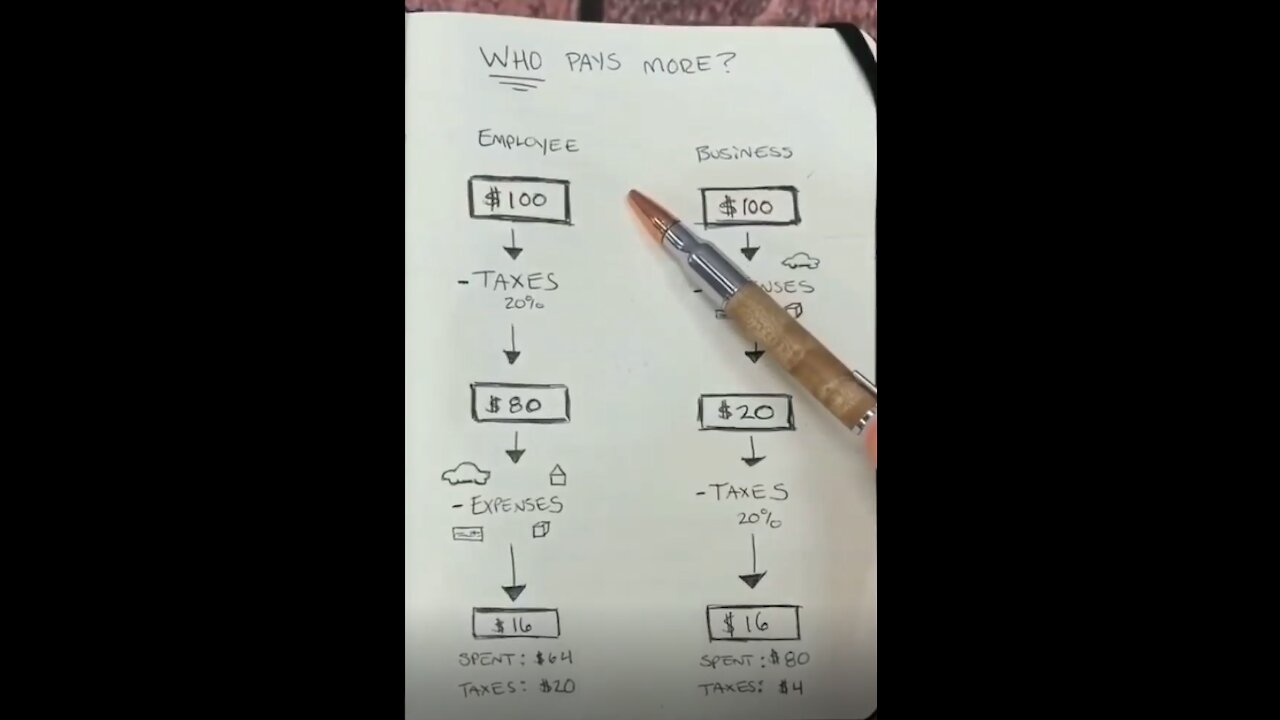 WHO PAYS MORE?
EMPLOYEE
$100
- TAXES
20%
$80
- EXPENSES
$16
SPENT: $64
TAXES: $20
BUSINESS
$100
$20
- TAXES
20%
$16
SPENT: $80
TAXES: $4